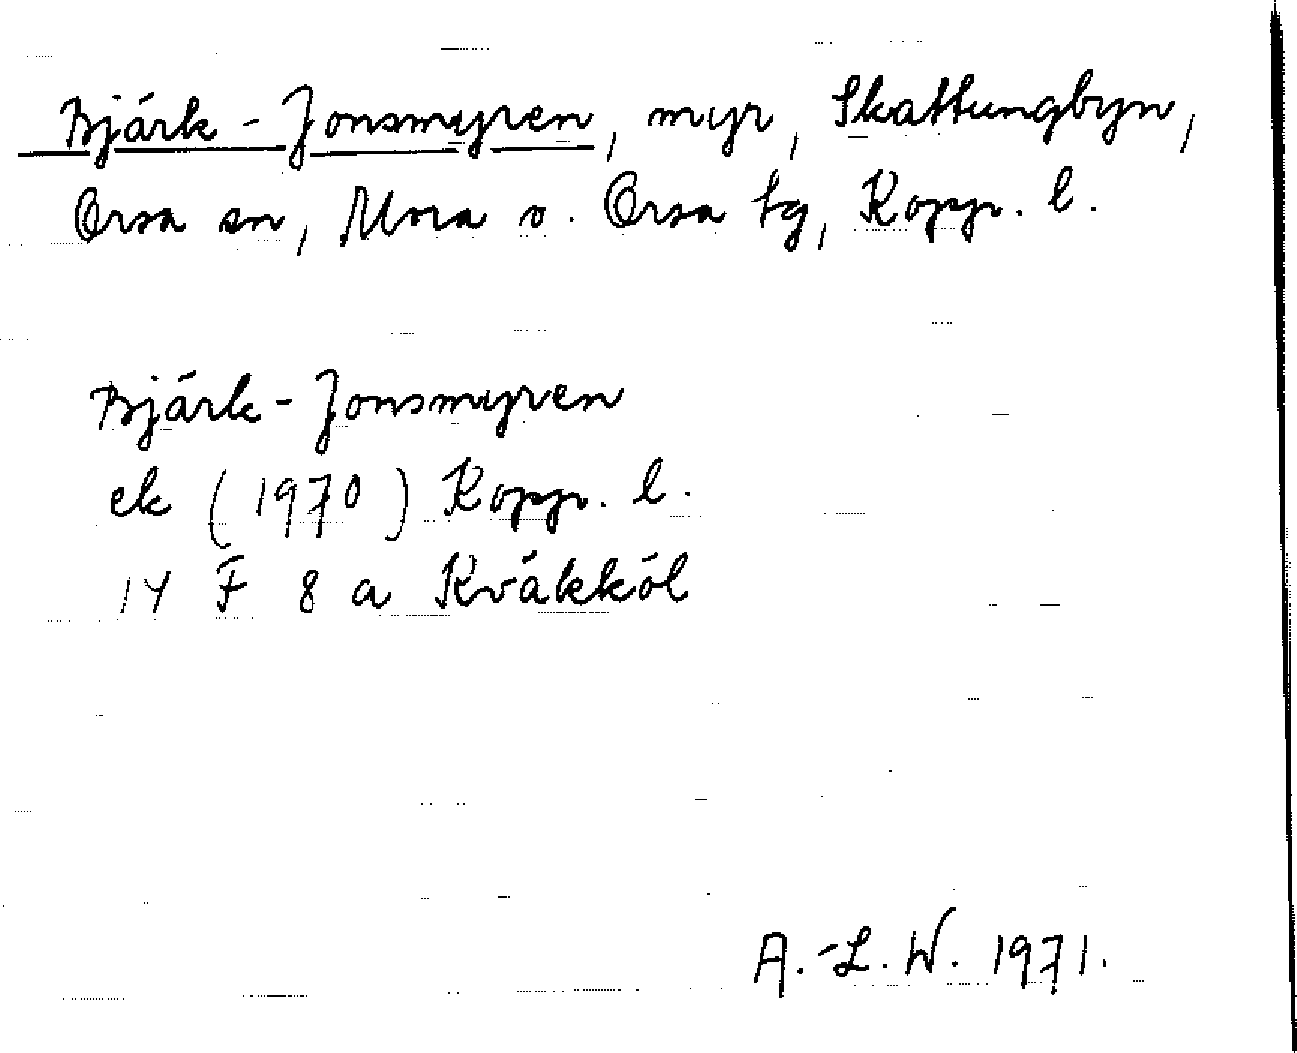 Bjärk-Jonsmyren, myr, Skattungbyn,
Orsa sn, Mora o. Orsa tg, Kopp. l.
Bjärk-Jonsmyren
ek (1970) Kopp. l.
14 F 8 a Kväkköl
A.-L. W. 1971.